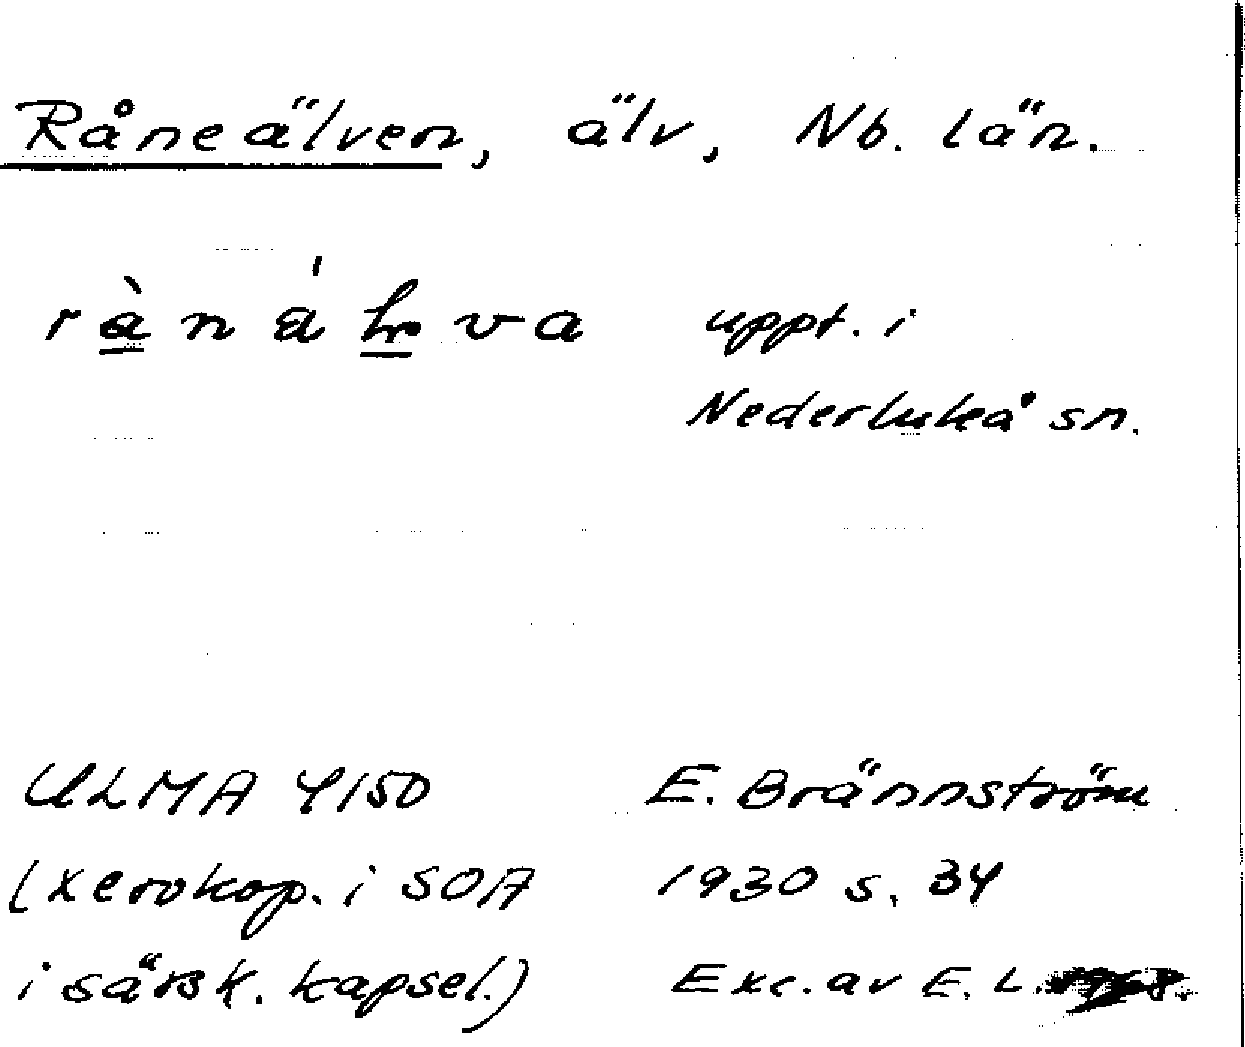 Råneälven, älv, Nb. län.
uppt. i
Nederluleå sn.
ULMA 4150 E. Brännström
(xerokop. i SOA 1930 s. 34
i särsk. kapsel.) Exc. av E. L.